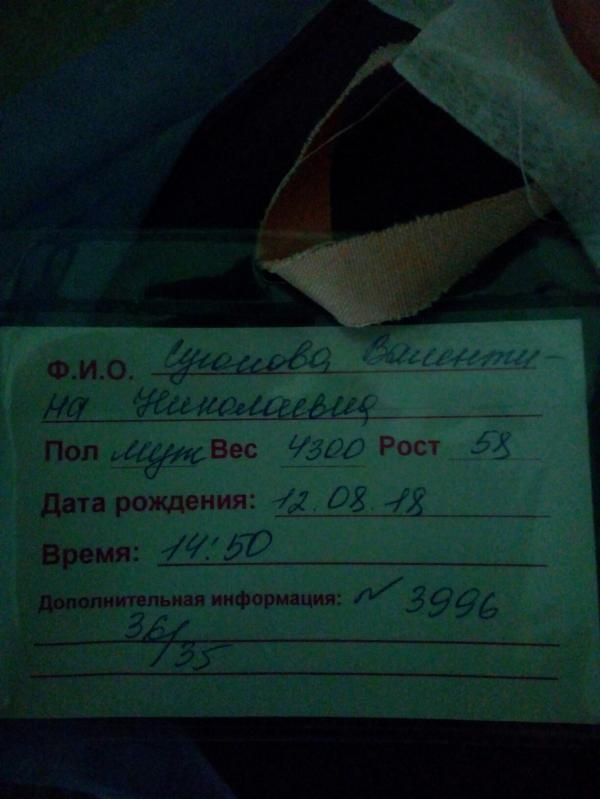 Ф.И.О. Валенти-
на Николаевна
Пол муж Вес 4300 Рост 58
Дата рождения: 12.08.18
Время: 14:50
Дополнительная информация: N 3996
36/35